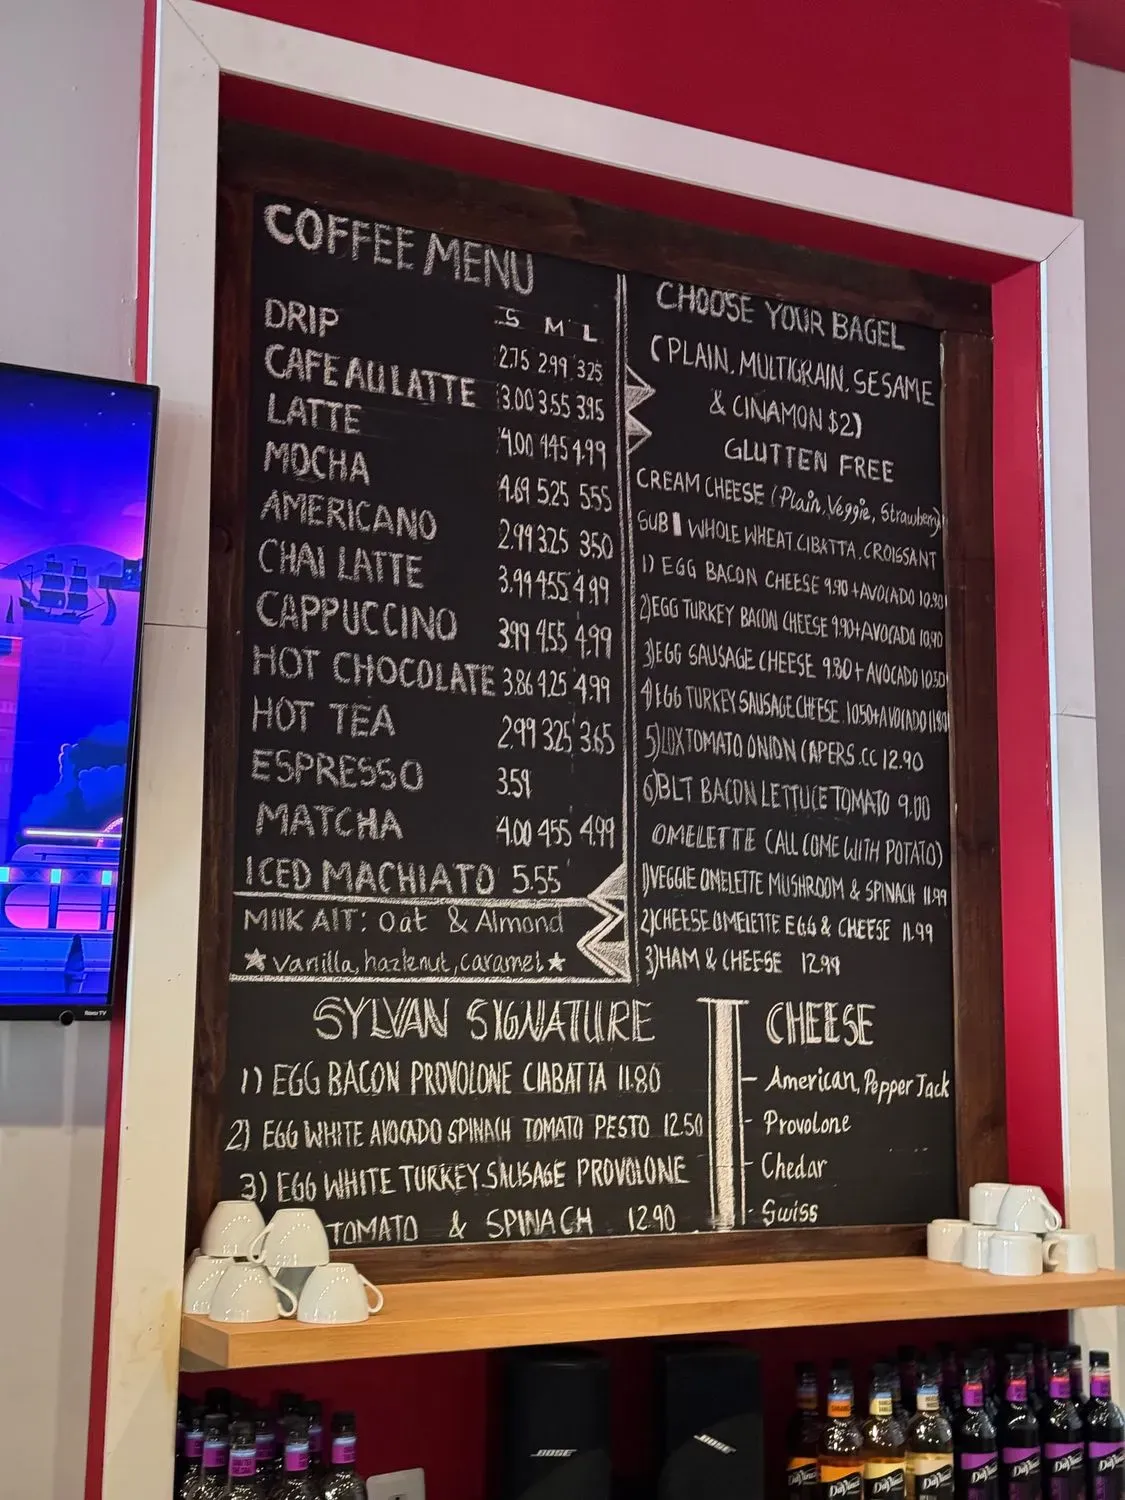 COFFEE MENU
S M L
DRIP 2.75 2.99 3.25
CAFE AU LATTE 3.00 3.55 3.95
LATTE 4.00 4.45 4.99
MOCHA 4.69 5.25 5.55
AMERICANO 2.99 3.25 3.50
CHAI LATTE 3.99 4.55 4.99
CAPPUCCINO 3.99 4.55 4.99
HOT CHOCOLATE 3.86 4.25 4.99
HOT TEA 2.99 3.25 3.65
ESPRESSO 3.59
MATCHA 4.00 4.55 4.99
ICED MACHIATO 5.55
MIlK AlT: Oat & Almond
★ vanilla, hazlenut, caramel ★
CHOOSE YOUR BAGEL
(PLAIN, MULTIGRAIN, SESAME
& CINAMON $2)
GLUTTEN FREE
CREAM CHEESE (Plain, Veggie, Strawberry)
SUB WHOLE WHEAT, CIBATTA, CROISSANT
1) EGG BACON CHEESE 9.90 + AVOCADO 10.90
2) EGG TURKEY BACON CHEESE 9.90 + AVOCADO 10.90
3) EGG SAUSAGE CHEESE 9.80 + AVOCADO 10.50
4) EGG TURKEY SAUSAGE CHEESE 10.50 + AVOCADO 11.80
5) LOX TOMATO ONION CAPERS .CC 12.90
6) BLT BACON LETTUCE TOMATO 9.00
OMELETTE (ALL COME WITH POTATO)
1) VEGGIE OMELETTE MUSHROOM & SPINACH 11.99
2) CHEESE OMELETTE EGG & CHEESE 11.99
3) HAM & CHEESE 12.99
SYLVAN SIGNATURE
1) EGG BACON PROVOLONE CIABATTA 11.80
2) EGG WHITE AVOCADO SPINACH TOMATO PESTO 12.50
3) EGG WHITE TURKEY SAUSAGE PROVOLONE
TOMATO & SPINACH 12.90
CHEESE
American, Pepper Jack
Provolone
Chedar
Swiss
Roku TV
BOSE
BOSE
DaVinci
DaVinci
DaVinci
DaVinci
DaVinci
DaVinci
DaVinci